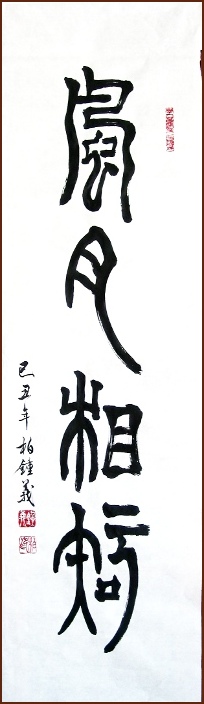 風月相知
己丑年柏鍾義